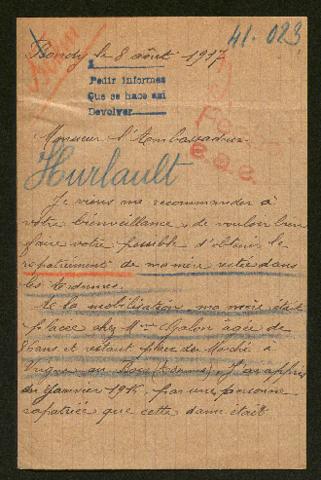 41.023
Bondy le 8 août 1917
Pedir informes
Que se hace asi
Devolver
Monsieur l'Ambassadeur
Hurlault
Je viens me recommander à
votre bienveillance, de vouloir bien
faire votre possible d'obtenir le
rapatriement de ma mère restée dans
les Ardennes.
De la mobilisation ma mère était
placée chez Mme Galon âgée de
8 ans et restant place du Marché à
Vrigne au Bois (Ardennes), J'ai appris
en Janvier 1915 par une personne
rapatriée que cette dame était